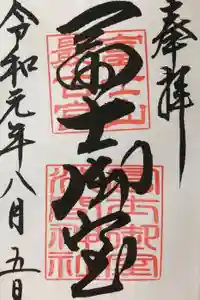 奉拝
冨士御室
令和元年八月五日